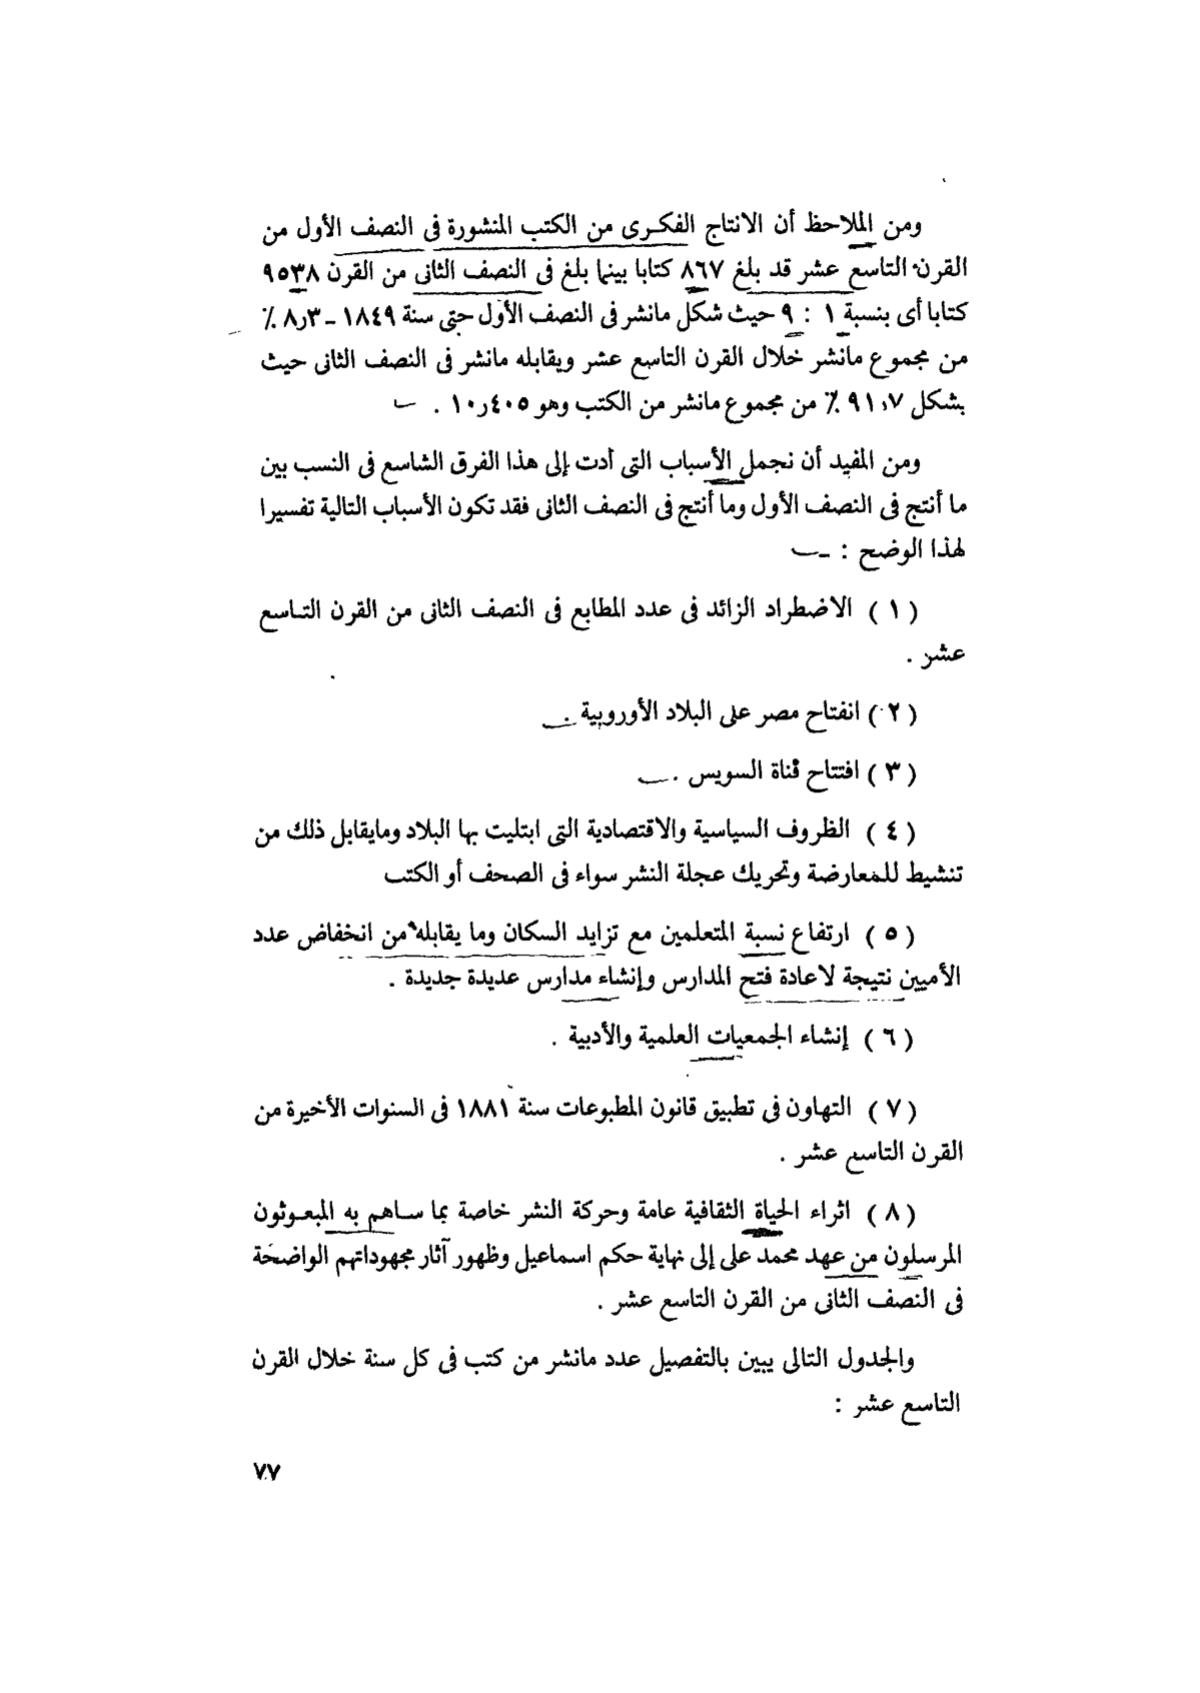 ومن الملاحظ أن الانتاج الفكرى من الكتب المنشورة فى النصف الأول من
القرن التاسع عشر قد بلغ ٨٦٧ كتابا بينما بلغ فى النصف الثانى من القرن ٩٥٣٨
كتابا أى بنسبة ١ : ٩ حيث شكل مانشر فى النصف الأول حتى سنة ١٨٤٩ ـ ٨٫٣ ٪
من مجموع مانشر خلال القرن التاسع عشر ويقابله مانشر فى النصف الثانى حيث
بشكل ٩١٫٧ ٪ من مجموع مانشر من الكتب وهو ١٠٫٤٠٥ .
ومن المفيد أن نجمل الأسباب التى أدت إلى هذا الفرق الشاسع فى النسب بين
ما أنتج فى النصف الأول وما أنتج فى النصف الثانى فقد تكون الأسباب التالية تفسيرا
لهذا الوضح : ـ
( ١ ) الاضطراد الزائد فى عدد المطابع فى النصف الثانى من القرن التاسع
عشر .
( ٢ ) انفتاح مصر على البلاد الأوروبية .
( ٣ ) افتتاح قناة السويس .
( ٤ ) الظروف السياسية والاقتصادية التى ابتليت بها البلاد ومايقابل ذلك من
تنشيط للمعارضة وتحريك عجلة النشر سواء فى الصحف أو الكتب
( ٥ ) ارتفاع نسبة المتعلمين مع تزايد السكان وما يقابله من انخفاض عدد
الأميين نتيجة لاعادة فتح المدارس وإنشاء مدارس عديدة جديدة .
( ٦ ) إنشاء الجمعيات العلمية والأدبية .
( ٧ ) التهاون فى تطبيق قانون المطبوعات سنة ١٨٨١ فى السنوات الأخيرة من
القرن التاسع عشر .
( ٨ ) اثراء الحياة الثقافية عامة وحركة النشر خاصة بما ساهم به المبعوثون
المرسلون من عهد محمد على إلى نهاية حكم اسماعيل وظهور آثار مجهوداتهم الواضحة
فى النصف الثانى من القرن التاسع عشر .
والجدول التالى يبين بالتفصيل عدد مانشر من كتب فى كل سنة خلال القرن
التاسع عشر :
٧٧